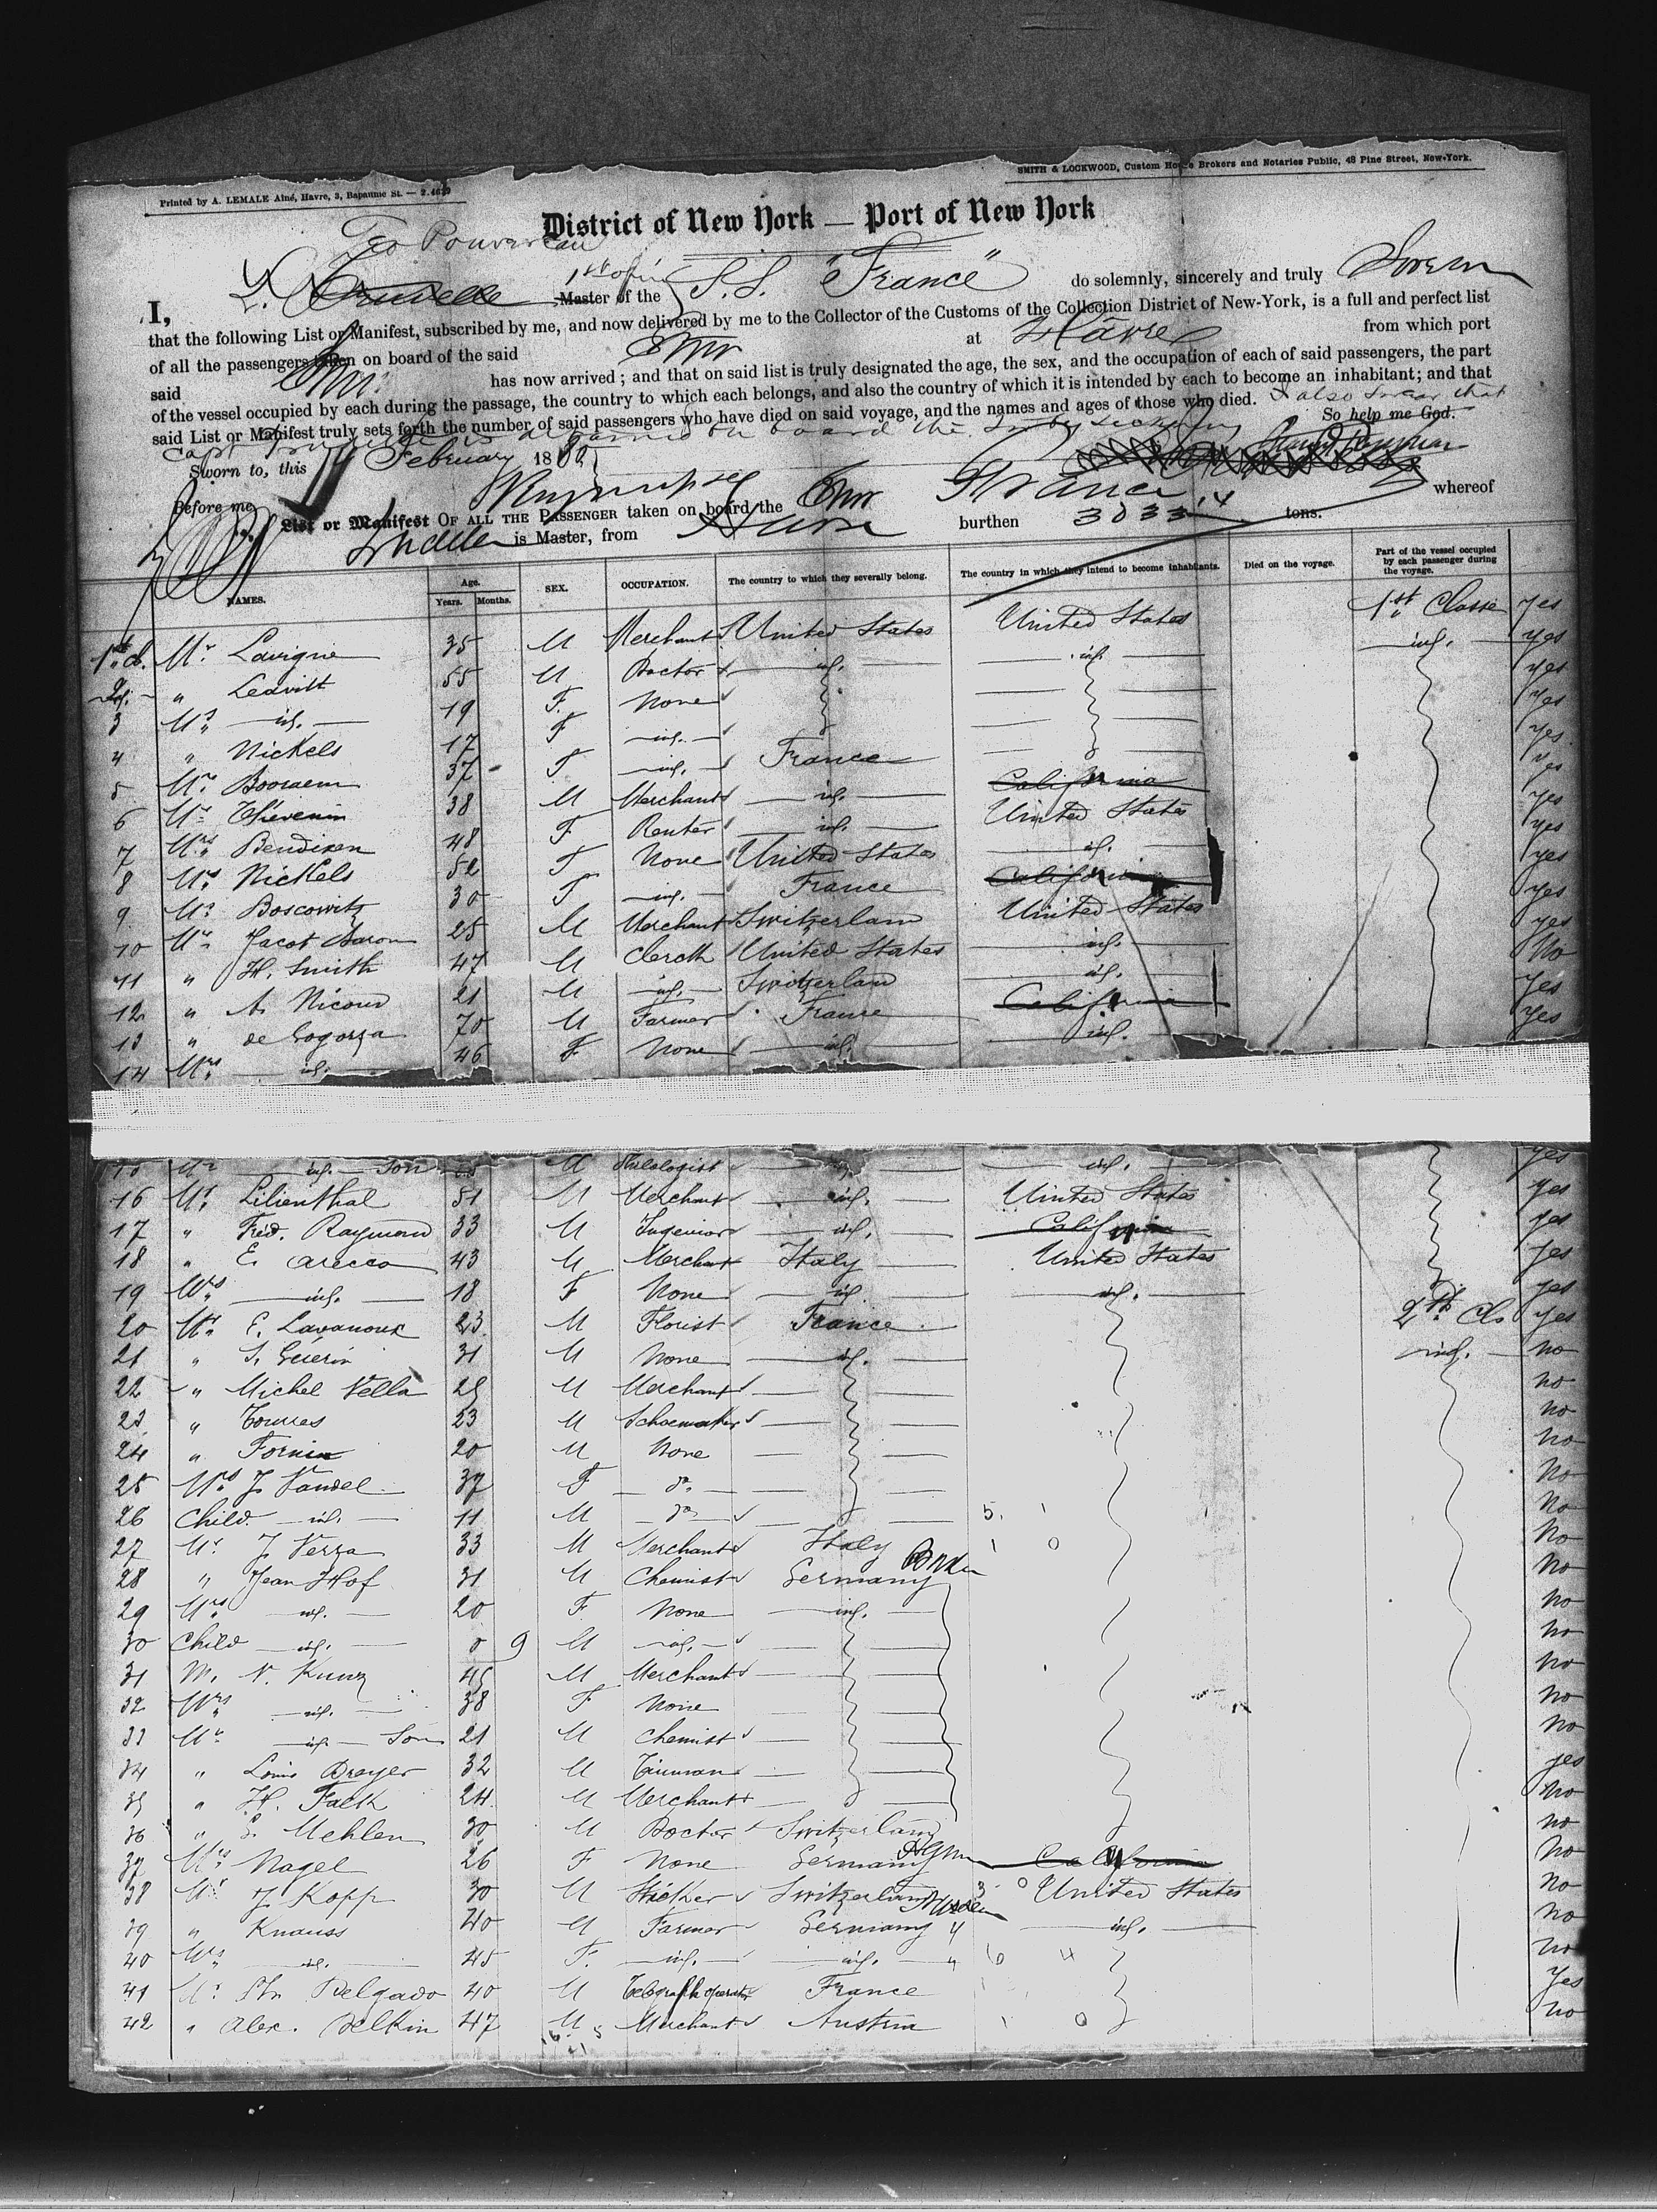 SMITH & LOCKWOOD, Custom House Brokers and Notaries Public, 48 Pine Street, New-York.
Printed by A. LEMALE Ainé, Havre, 3, Bapaume St. — 2.4629
District of New York — Port of New York
I, L. Trudelle 1st ofic Master of the S.S. "France" do solemnly, sincerely and truly Swear
that the following List or Manifest, subscribed by me, and now delivered by me to the Collector of the Customs of the Collection District of New-York, is a full and perfect list
of all the passengers taken on board of the said Stmr at Hâvre from which port
said Stmr has now arrived; and that on said list is truly designated the age, the sex, and the occupation of each of said passengers, the part
of the vessel occupied by each during the passage, the country to which each belongs, and also the country of which it is intended by each to become an inhabitant; and that
said List or Manifest truly sets forth the number of said passengers who have died on said voyage, and the names and ages of those who died. I also swear that
Capt Trudelle is detained on board the Str by sickness So help me God.
Sworn to, this February 188
Before me
List or Manifest OF ALL THE PASSENGER taken on board the Stmr France whereof
Trudelle is Master, from Havre burthen 3033 14 tons.
NAMES. Age. Years. Months. SEX. OCCUPATION. The country to which they severally belong. The country in which they intend to become inhabitants. Died on the voyage. Part of the vessel occupied by each passenger during the voyage.
1st cl. Mr. Lavigne 35 M Merchant United States United States 1st Classe yes
2 " Leavitt 55 M Doctor id. id. id. yes
3 Ms id. 19 F. None yes
4 " Nickels 17 F id. yes
5 Ms. Booraem 37 F id. France yes
6 Mr. Thévenin 38 M Merchant id. California yes
7 Mrs. Bendixen 48 F Renter id. United States yes
8 Ms. Nickels 52 F None United States id. yes
9 Ms. Boscowitz 30 F id. France California yes
10 Mr. Jacot Aaron 25 M Merchant Switzerland United States yes
11 " H. Smith 47 M Clerck United States id. yes
12 " A. Nicoud 21 M id. Switzerland id. No
13 " de Gogorza 70 M Farmer France California yes
14 Mrs. id. 46 F None id. id. yes
Mr id. Son M Theologist id. yes
16 Mr. Lilienthal 51 M Merchant id. United States yes
17 " Fréd. Raymond 33 M Ingenior id. California yes
18 " E. Arecco 43 M Merchant Italy United States yes
19 Mrs. id. 18 F None id id. yes
20 Mr. E. Lavanoux 23 M Florist France 2nd Cls yes
21 " S. Guérin 31 M None id. id. no
22 " Michel Vella 25 M Merchant no
23 " Tournes 23 M Schoemaker no
24 " Fornin 20 M None no
25 Mrs. J. Vandel 37 F do. No
26 Child id. 11 M do 5. 1 No
27 Mr. J. Verza 33 M Merchant Italy 1 0 No
28 " Jean Hof 31 M Chemist Germany Baden No
29 Mrs. id. 20 F. None id. no
30 Child id. 0 9 M id. no
31 M. N. Kunz 45 M Merchant no
32 Mrs id. 38 F None no
33 Mr. id. Son 21 M Chemist no
34 " Louis Dreyer 32 M Tinman yes
35 " H. Falk 24 M Merchant no
36 " Mehlen 30 M Doctor Switzerland no
37 Mrs Nagel 26 F None Germany California No
38 Mr J. Kopp 30 M Switzerland 3 0 United States No
39 " Knauss 40 M Farmer Germany " id. no
40 Mrs. id. 45 F. id. id. " 10 4 no
41 Mr Delgado 40 M Telegraph operator France Yes
42 " Alex. Delkin 47 M Merchant Austria 1 0 no